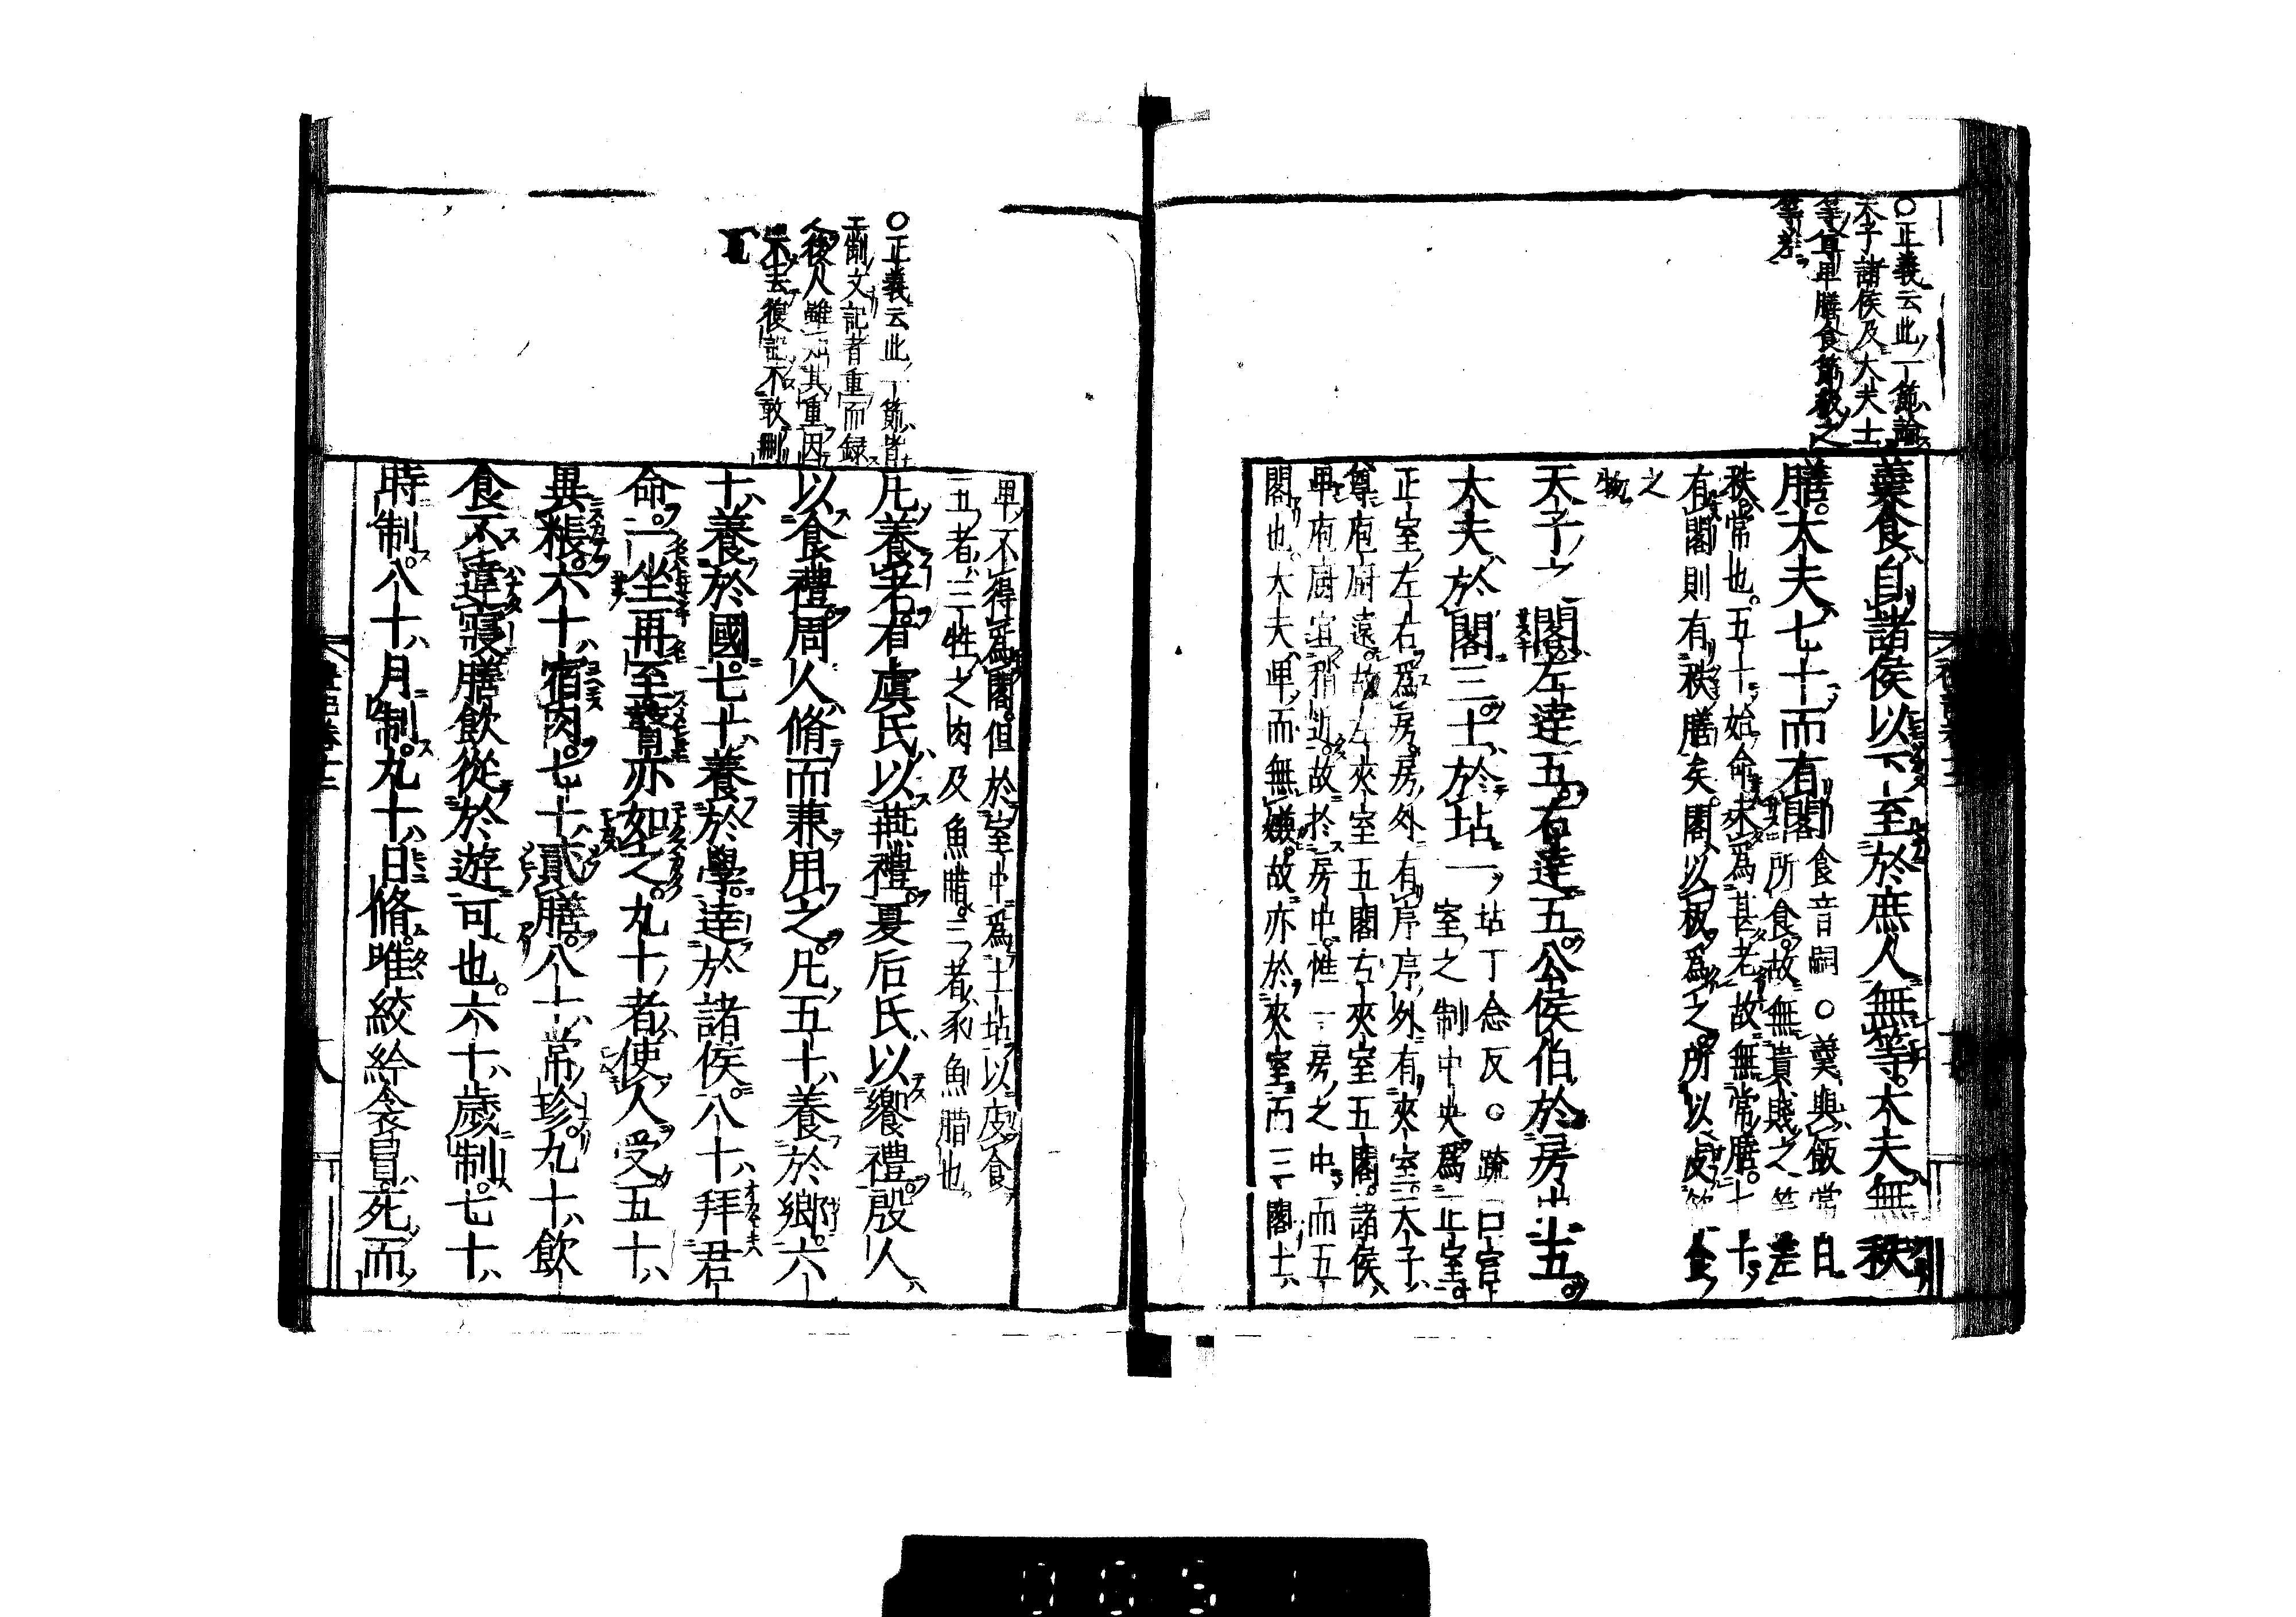 ○正義云此一節論
天子諸侯及大夫士
等尊卑膳食節級之
等差
羹食自諸侯以下至於庶人無等大夫無秩
膳大夫七十而有閣
食音嗣○羹與飯常日
所食故無貴賤之等差
秩常也五十始命未為甚老故無常膳七十
有閣則有秩膳矣閣以板為之所以庋飲食
之
物
天子之閣左達五右達五公侯伯於房中五
大夫於閣三士於坫一
坫丁念反○疏曰宮
室之制中央為正室
正室左右為房房外有序序外有夾室天子
尊庖厨遠故左夾室五閣右夾室五閣諸侯
卑庖厨宜稍近故於房中惟一房之中而五
閣也大夫卑而無嫌故亦於夾室而三閣士
○正義云此一節皆
王制文記者重而録
後人雖知其重因
不去復記不敢刪
卑不得為閣但於室中為土坫以庋食
五者三牲之肉及魚腊三者豕魚腊也
凡養老有虞氏以燕禮夏后氏以饗禮殷人
以食禮周人脩而兼用之凡五十養於鄉六
十養於國七十養於學達於諸侯八十拜君
命一坐再至瞽亦如之九十者使人受五十
異粻六十宿肉七十貳膳八十常珍九十飲
食不違寢膳飲從於遊可也六十歲制七十
時制八十月制九十日脩唯絞紟衾冒死而
0031